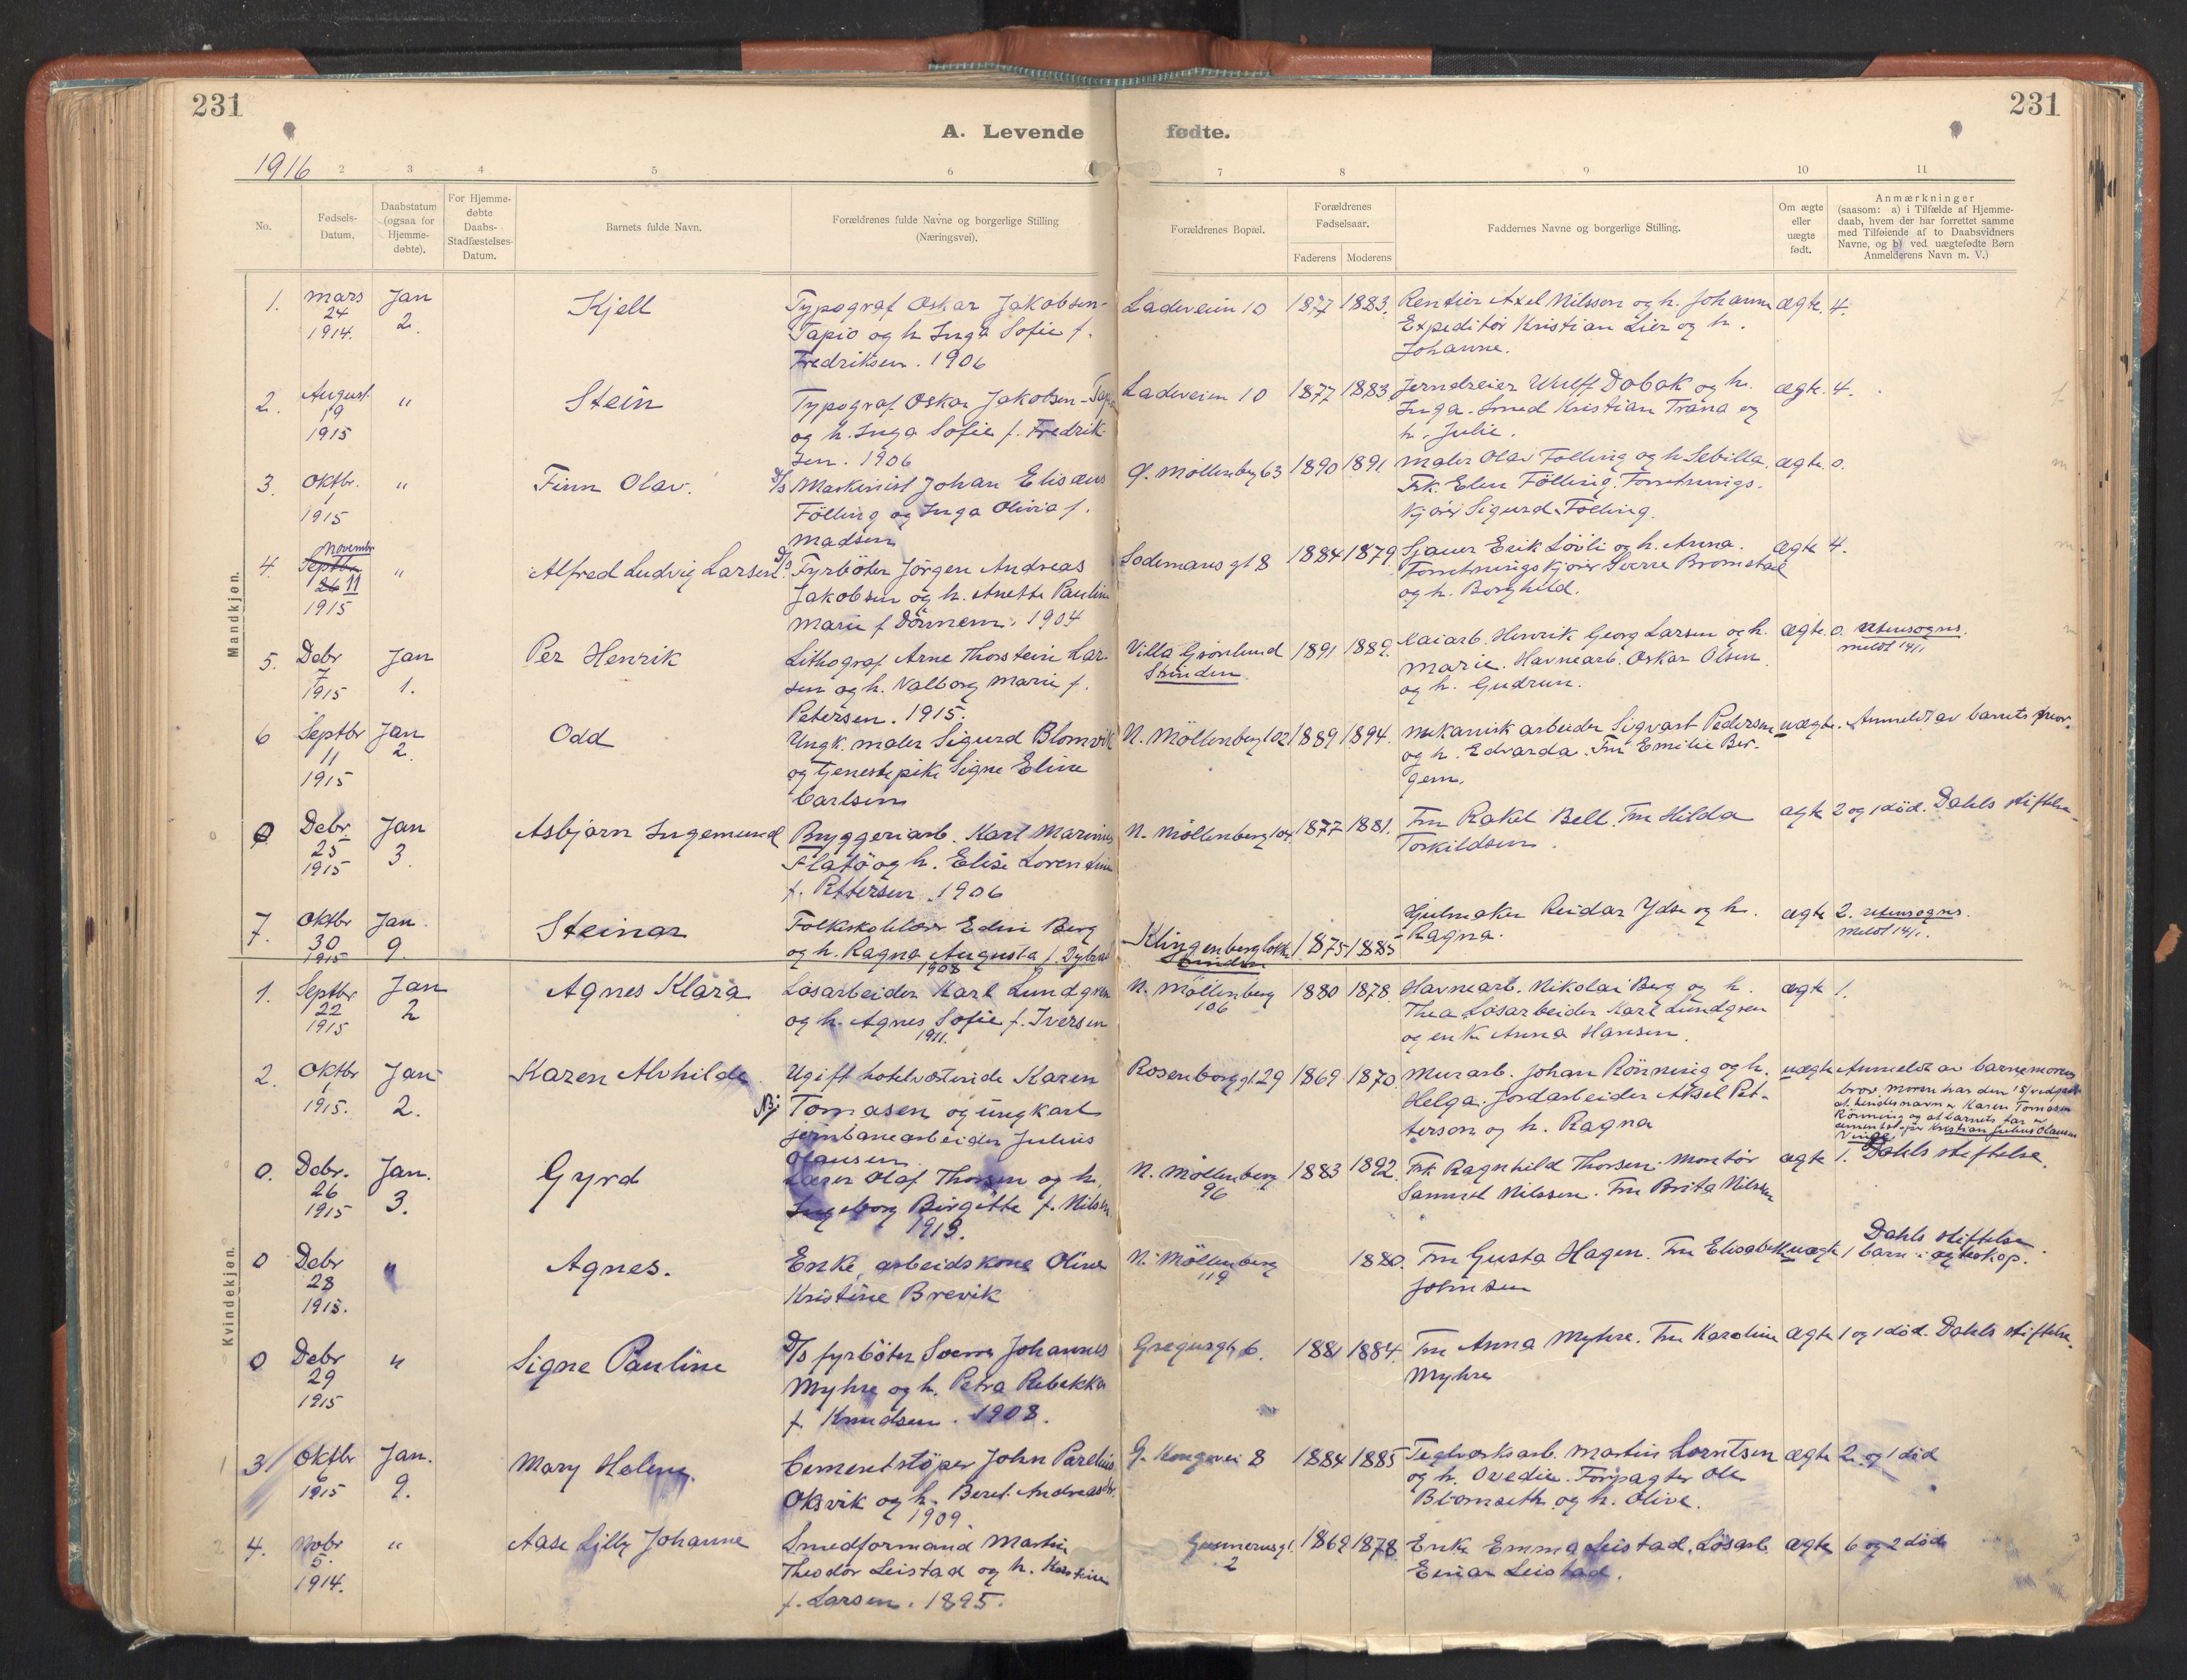 231
231
A. Levende fødte.
1916
2 3 4 5 6 7 8 9 10 11
No.
Fødsels-
Datum.
Daabstatum
(ogsaa for
Hjemme-
døbte).
For Hjemme-
døbte
Daabs-
Stadfæstelses-
Datum.
Barnets fulde Navn.
Forældrenes fulde Navne og borgerlige Stilling
(Næringsvei).
Forældrenes Bopæl.
Forældrenes
Fødselsaar.
Faderens Moderens
Faddernes Navne og borgerlige Stilling.
Om ægte
eller
uægte
født.
Anmærkninger
(saasom: a) i Tilfælde af Hjemme-
daab, hvem der har forrettet samme
med Tilføiende af to Daabsvidners
Navne, og b) ved uægtefødte Børn
Anmelderens Navn m. V.)
Mandkjøn.
1. Mars Jan Kjell Typograf Oskar Jakobsen- Ladeveien 10 1877 1883. Rentier Axel Nilsson og h. Johanne ægte. 4.
24 2. Tapio og h. Inga Sofie f. Expeditør Kristian Lier og h.
1914. Fredriksen. 1906 Johanne.
2. August " Stein Typograf Oskar Jakobsen-Tapio Ladeveien 10 1877 1883. Jerndreier Wulff Dobak og h. ægte. 4.
19 og h. Inga Sofie f. Fredrik- Inga. Smed Kristian Trana og
1915 sen. 1906 h. Julie.
3. Oktbr. " Finn Olav. D/s Maskinist Johan Elisæus Ø. Möllenberg 63 1890 1891 Maler Olav Fölling og h. Sebilla. ægte. 0.
1 Fölling og Inga Olivia f. Frk. Elen Fölling. Forretnings-
1915 Madsen kjører Sigurd Fölling.
4. Novembr Septbr " Alfred Ludvig Larsen D/s Fyrböter Jörgen Andreas Sodemans gt 8 1884 1879. Sjauer Erik Lövli og h. Anna. ægte 4.
26 11 Jakobsen og h. Anette Pauline Forretningskjører Sverre Bromstad
1915 Marie f. Dönnem. 1904 og h. Borghild.
5. Debr Jan Per Henrik Lithograf Arne Thorstein Lar- Villa Grönlund 1891 1889. Kaiarb. Henrik Georg Larsen og h. ægte. 0. Utensogns.
7 1. sen og h. Valborg Marie f. Strinden. Marie. Havnearb. Oskar Olsen meldt 14/1
1915 Petersen. 1915. og h. Gudrun.
6 Septbr Jan Odd Ungk. maler Sigurd Blomvik N. Möllenberg 102 1889 1894. Mekanisk arbeider Sigvart Pedersen uægte. Anmeldt av barnets
11 2. og tjenestepike Signe Eline og h. Edvarda. Fru Emilie Ber-
1915 Carlsen gem.
0 Debr. Jan Asbjørn Ingemund Bryggeriarb. Karl Marinius N. Möllenberg 1877 1881. Fru Rakel Bell. Fru Hilda ægte 2 og 1 död. Dahls stiftelse.
25 3. Flatö og h. Elise Lorentine Torkildsen.
1915 f. Pettersen. 1906
7. Oktbr Jan. Steinar Folkeskolelærer Edin Berg Klingenberg 1875 1885 Hjulmaker Reidar Ydse og h. ægte 2. Utensogns.
30 9. og h. Ragna Augusta f. Strinden Ragna. meldt 14/1.
1915 1908
Kvindekjøn.
1. Septbr Jan Agnes Klara Lösarbeider Karl Lundgren N. Möllenberg 1880 1878. Havnearb. Nikolai Berg og h. ægte 1.
22 2 og h. Agnes Sofie f. Iversen 106 Thea. Lösarbeider Karl Lundgren
1915 1911. og enke Anna Hansen.
2. Oktbr Jan Karen Alvhilde Ugift hotelværtinde Karen Rosenborggt. 29 1869 1870. Murarb. Johan Rönning og h. uægte Anmeldt av barnemorens
1 2. NB: Tomasen og ungkarl Helga. Jordarbeider Aksel Pet- bror Moren har den 15/
1915. jernbanearbeider Julius terson og h. Ragna hendes navn er Karen Tomasen
Olausen Rönning og at barnets far er
Kristian Julius Olausen
0. Debr. Jan. Gyrd Lærer Olaf Thorsen og h. N. Möllenberg 1883 1892. Frk Ragnhild Thorsen. Montör ægte 1. Dahls stiftelse.
26 3. Ingeborg Birgitte f. Nilsen 96 Samuel Nilssen. Fru Brita Nilssen
1915 1913.
0 Debr " Agnes. Enke, arbeidskone Oline N. Möllenberg 1880. Fru Gusta Hagen. Fru Elisabeth uægte 1 barn i ægteskap. Dahls stiftelse.
28 Kristine Brevik 119 Johnsen
1915.
0 Debr " Signe Pauline D/s fyrböter Sverre Johannes Gregusgt. 6. 1881 1884. Fru Anna Myhre. Fru Karoline ægte 1 og 1 död. Dahls stiftelse.
29 Myhre og h. Petra Rebekka Myhre
1915 f. Knudsen. 1908.
3 Oktbr Jan. Mary Helene. Cementstöper John Parelius G. Kongevei 8 1884 1885 Teglverksarb. Martin Lorntsen ægte 2 og 1 död
6 9. Oksvik og h. Beret Andreasdr. og h. Ovedie. Forpagter Ole
1915 1909. Blomseth og h. Olive.
4. Nobr " Aase Lilly Johanne Smedformand Martin Gunnerusgt. 1869 1878. Enke Emma Leistad. Lösarb. ægte 6 og 2 död
5. Theodor Leistad og h. Kirstine 2 Einar Leistad.
1914. f. Larsen. 1895.